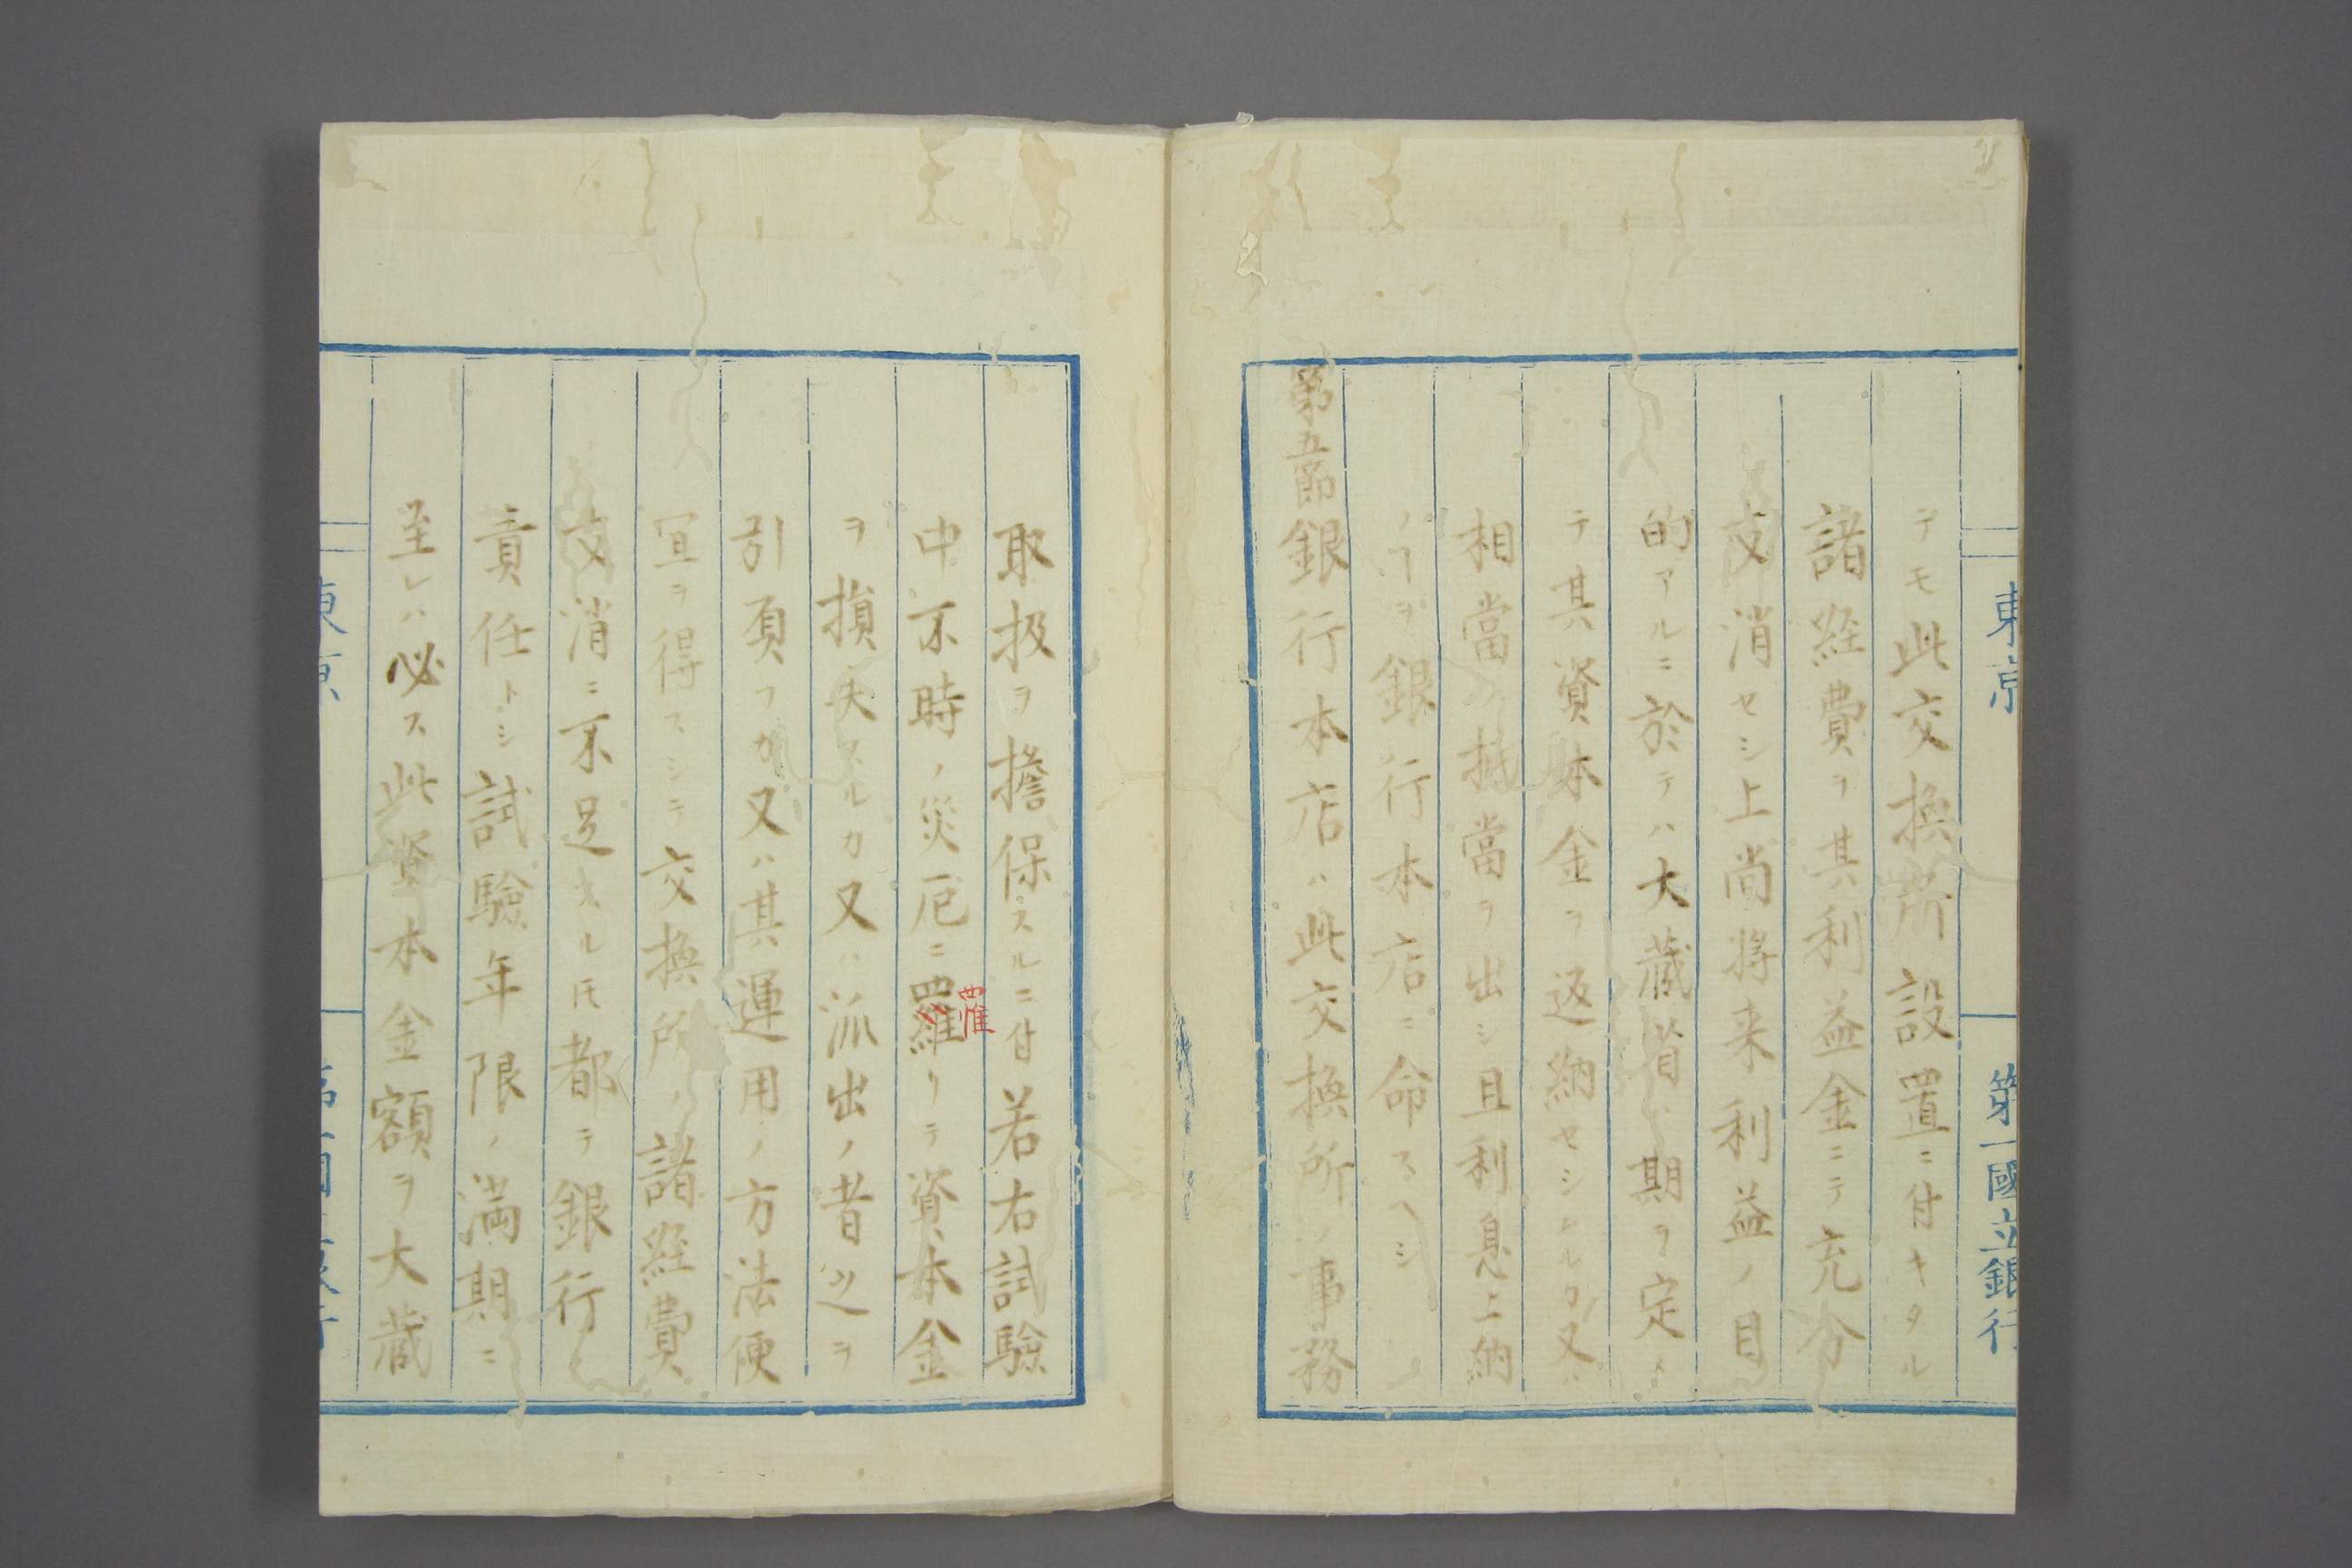 東京 第一國立銀行
テモ此交換所設置ニ付キタル
諸経費ヲ其利益金ニテ充分
支消セシ上尚将来利益ノ目
的アルニ於テハ大藏省ハ期ヲ定メ
テ其資本金ヲ返納セシムルカ又ハ
相當ノ抵當ヲ出シ且利息上納
ノヿヲ銀行本店ニ命スヘシ
第五節銀行本店ハ此交換所ノ事務
取扱ヲ擔保スルニ付若右試驗
中不時ノ災厄ニ羅リテ資本金
罹
ヲ損失スルカ又ハ派出ノ者之ヲ
引負フカ又ハ其運用ノ方法便
宜ヲ得スシテ交換所ノ諸経費
支消ニ不足スルトモ都テ銀行
責任トシ試驗年限ノ満期ニ
至レハ必ス此資本金額ヲ大藏
東京